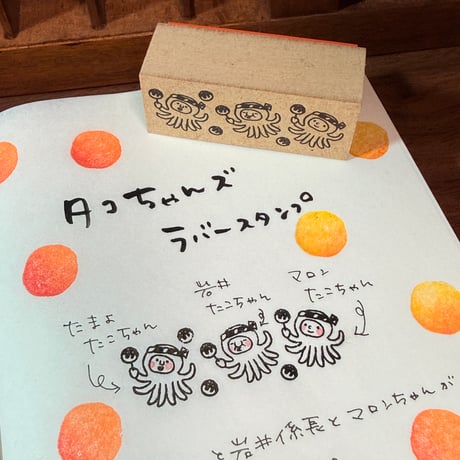 タコちゃんズ
ラバースタンプ
たまよ
たこちゃん
岩井
たこちゃん
マロン
たこちゃん
と岩井係長とマロンちゃんが